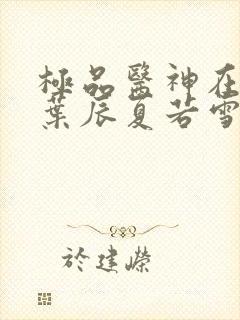 極品醫神在
葉辰夏若雪
於建嶸